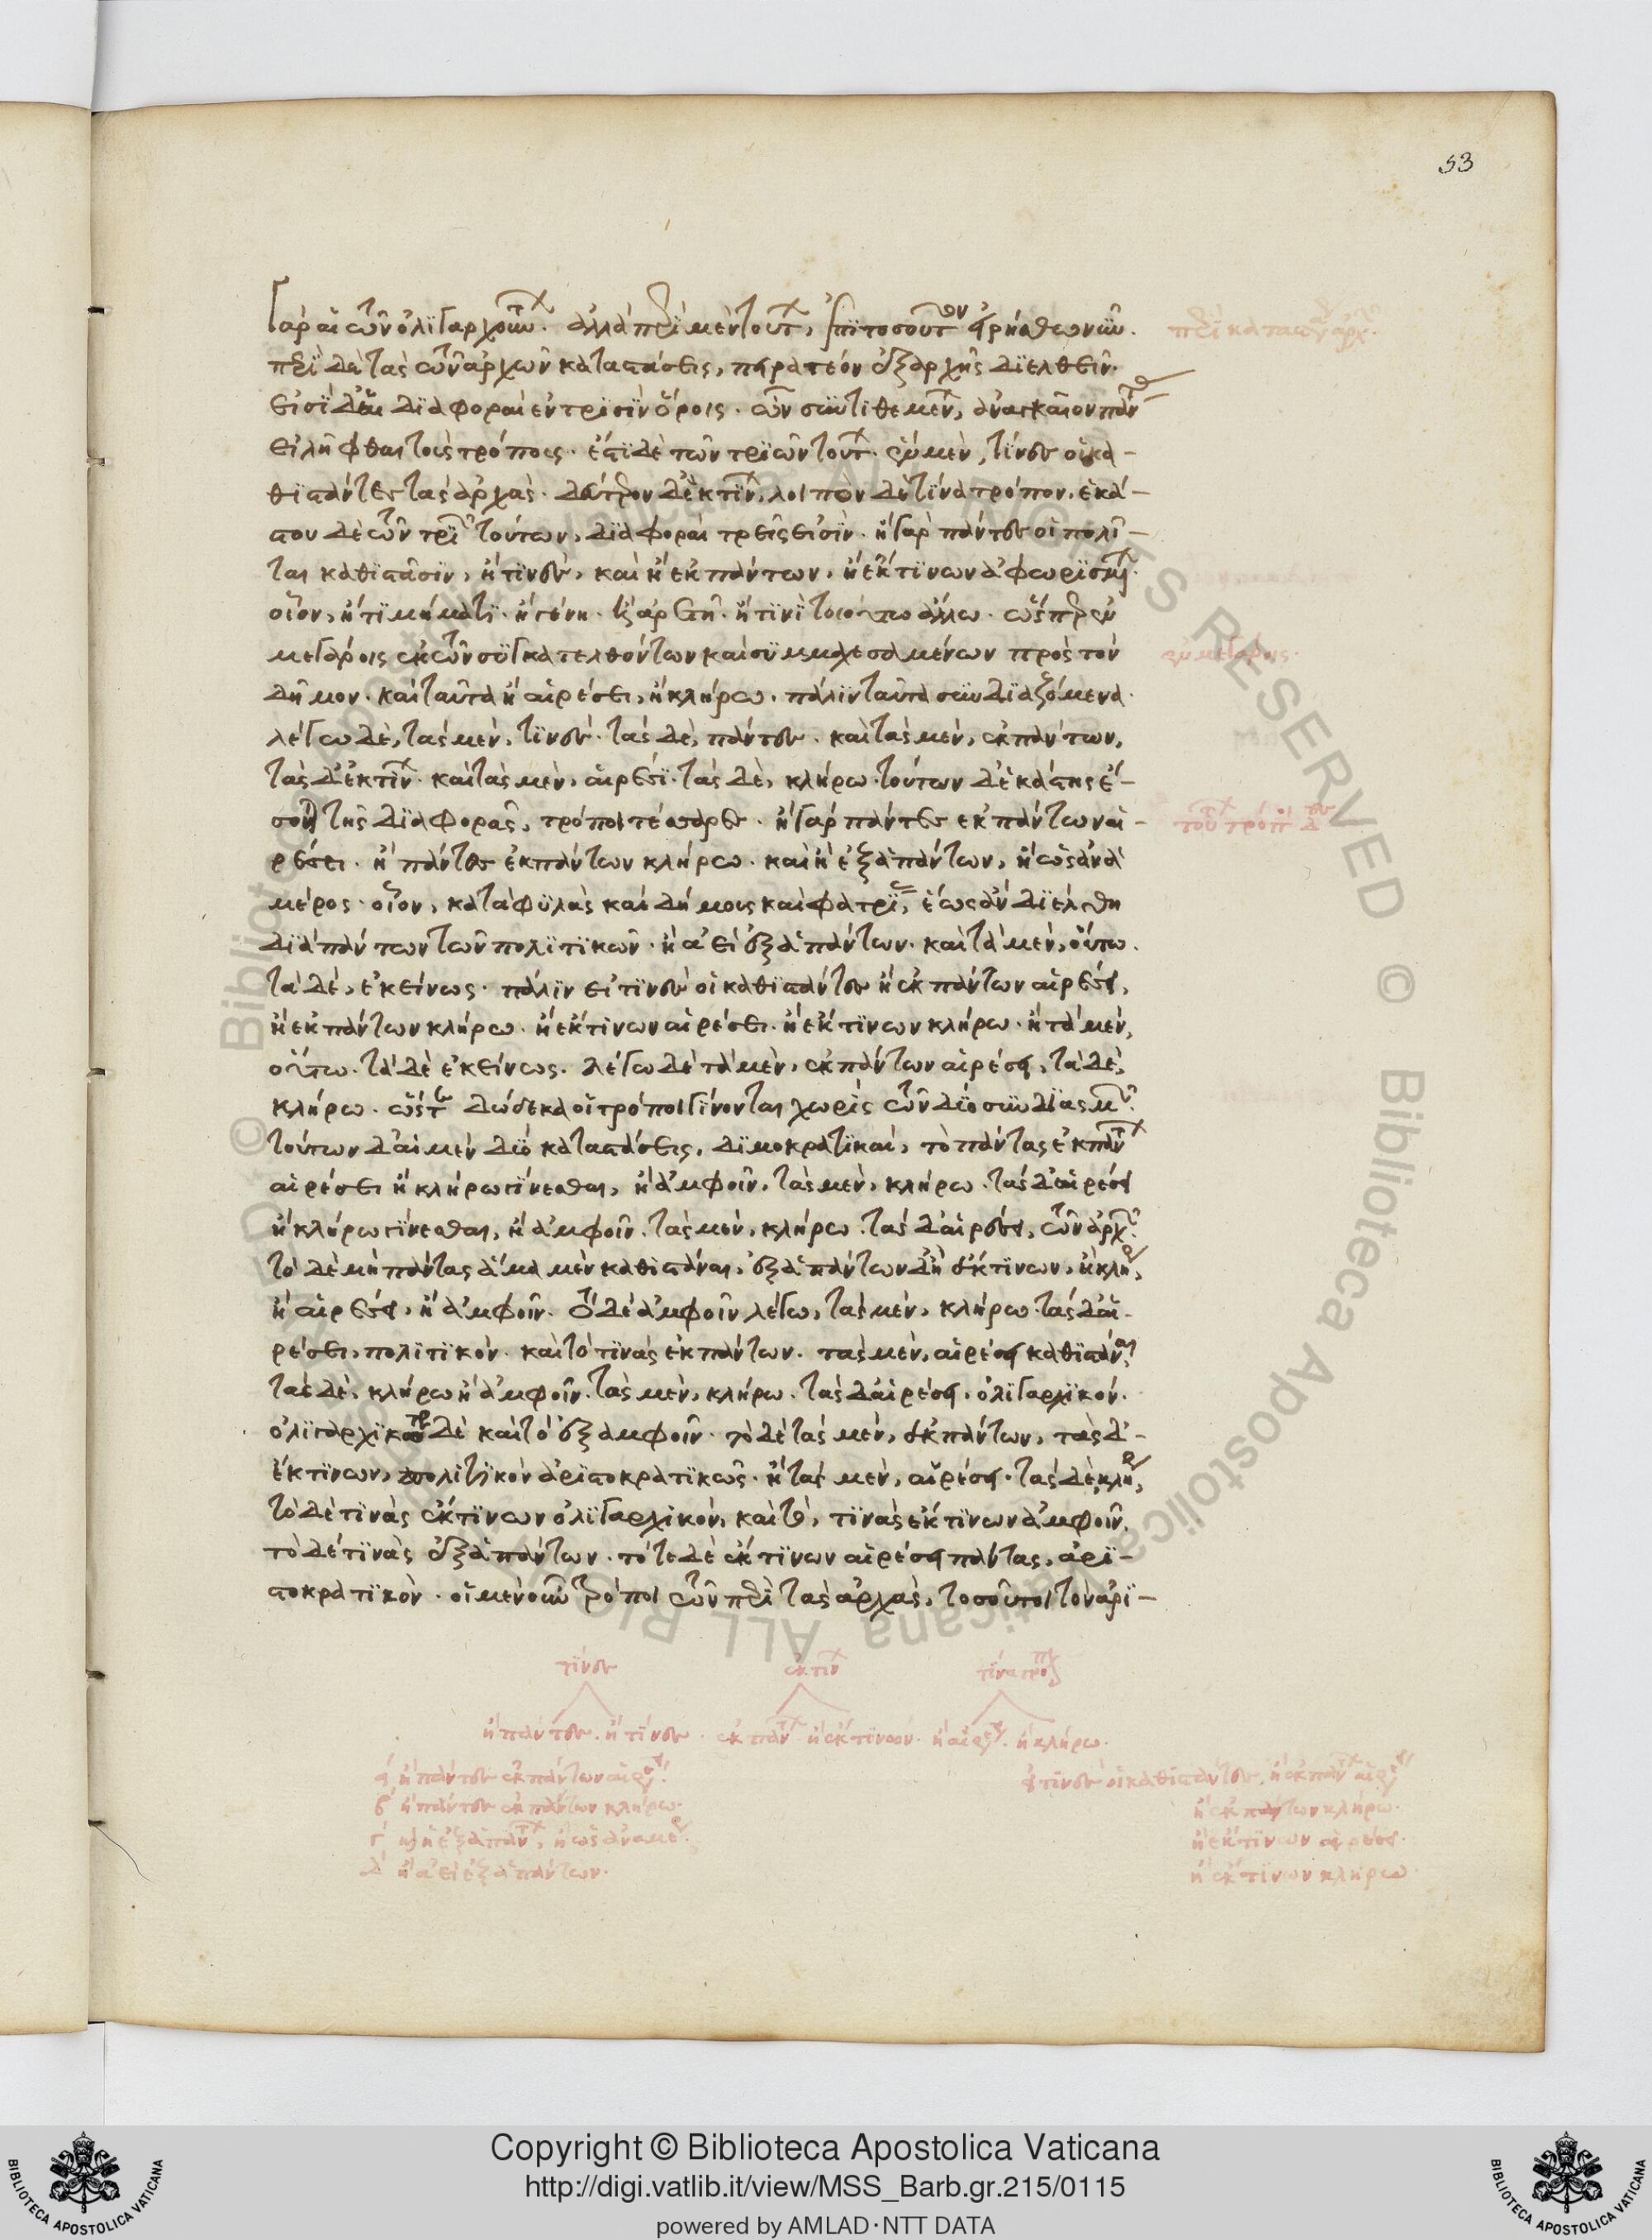 53
γάρ αἱ τῶν ὀλιγαρχούντων. ἀλλὰ περὶ μὲν τούτων, ἐπὶ τοσοῦτον εἰρήσθω νῦν.
περὶ δὲ τὰς τῶν ἀρχῶν καταστάσεις, πειρατέον ἐξαρχῆς διελθεῖν.
εἰσὶ δ' αἱ διαφοραὶ ἐν τρισὶν ὅροις. ὧν συντιθεμένων, ἀναγκαῖον πάντας
εἰλῆφθαι τοὺς τρόπους. ἔστι δὲ τῶν τριῶν τούτων. ἓν μὲν, τίνες οἱ κα-
θιστάντες τὰς ἀρχάς. δεύτερον δ' ἐκ τίνων, λοιπὸν δὲ τίνα τρόπον. ἑκά-
στου δὲ τῶν τριῶν τούτων, διαφοραὶ τρεῖς εἰσὶν. ἢ γὰρ πάντες οἱ πολῖ-
ται καθιστᾶσιν, ἢ τινὲς, καὶ ἢ ἐκ πάντων, ἢ ἐκ τινων ἀφωρισμένων.
οἷον, ἢ τιμήματι. ἢ γένει. ἢ ἀρετῇ. ἤ τινι τοιούτω ἄλλω. ὥσπερ ἐν
μεγάροις ἐκ τῶν συγκατελθόντων καὶ συμμαχεσαμένων πρὸς τὸν
δῆμον. καὶ ταῦτα ἢ αἱρέσει, ἢ κλήρω. πάλιν ταῦτα συνδιαζόμενα.
λέγω δὲ, τὰς μὲν, τινές. τὰς δὲ, πάντες. καὶ τὰς μὲν, ἐκ πάντων,
τὰς δ' ἐκ τινῶν. καὶ τὰς μὲν, αἱρέσει. τὰς δὲ, κλήρω. τούτων δ' ἑκάστης ἔ-
σονται τῆς διαφορᾶς, τρόποι τέσσαρες. ἢ γὰρ πάντες ἐκ πάντων αἱ-
ρέσει. ἢ πάντες ἐκ πάντων κλήρω. καὶ ἢ ἐξ ἁπάντων, ἢ ὡς ἀνὰ
μέρος. οἷον, κατὰ φυλὰς καὶ δήμους καὶ φατρίας, ἕως ἂν διέλθη
διὰ πάντων τῶν πολιτικῶν. ἢ ἀεὶ ἐξ ἁπάντων. καὶ τὰ μὲν, οὕτω.
τὰ δὲ, ἐκείνως. πάλιν εἰ τινὲς οἱ καθιστάντες ἢ ἐκ πάντων αἱρέσει,
ἢ ἐκ πάντων κλήρω. ἢ ἐκ τινων αἱρέσει. ἢ ἐκ τινων κλήρω. ἢ τὰ μὲν,
οὕτω. τὰ δὲ ἐκείνως. λέγω δὲ τὰ μὲν, ἐκ πάντων αἱρέσει, τὰ δὲ,
κλήρω. ὥστε δώδεκα οἱ τρόποι γίνονται χωρὶς τῶν δύο συνδιασμῶν.
τούτων δ' αἱ μὲν δύο καταστάσεις, δημοκρατικαὶ, τὸ πάντας ἐκ πάντων
αἱρέσει ἢ κλήρω γίνεσθαι, ἢ ἀμφοῖν. τὰς μὲν, κλήρω. τὰς δ' αἱρέσει
ἢ κλήρω γίνεσθαι, ἢ ἀμφοῖν. τὰς μὲν, κλήρω. τὰς δ' αἱρέσει, τῶν ἀρχῶν.
τὸ δὲ μὴ πάντας ἅμα μὲν καθιστάναι, ἐξ ἁπάντων δ' ἢ ἐκ τινων, ἢ κλήρω,
ἢ αἱρέσει, ἢ ἀμφοῖν. ὃ δὲ ἀμφοῖν λέγω, τὰς μὲν, κλήρω. τὰς δ' αἱ-
ρέσει, πολιτικόν. καὶ τό τινας ἐκ πάντων. τὰς μὲν, αἱρέσει καθιστάναι,
τὰς δὲ, κλήρω ἢ ἀμφοῖν. τὰς μὲν, κλήρω. τὰς δ' αἱρέσει, ὀλιγαρχικόν.
ὀλιγαρχικώτερον δὲ καὶ τὸ ἐξ ἀμφοῖν. τὸ δὲ τὰς μὲν, ἐκ πάντων, τὰς δ'-
ἐκ τινων, πολιτικὸν ἀριστοκρατικῶς. ἢ τὰς μὲν, αἱρέσει. τὰς δὲ κλήρω,
τὸ δὲ τινὰς ἐκ τινων ὀλιγαρχικόν, καὶ τὸ, τινὰς ἐκ τινων ἀμφοῖν.
τὸ δὲ τινὰς ἐξ ἁπάντων. τότε δὲ ἐκ τινων αἱρέσει πάντας, ἀρι-
στοκρατικόν. οἱ μὲν οὖν τρόποι τῶν περὶ τὰς ἀρχὰς, τοσοῦτοι τὸν ἀρι-
περὶ καταστάσεων ἀρχῶν.
ἐν μεγάροις.
τούτων τρόποι δ
τίνες
ἐκ τίνων
τίνα τρόπον
ἢ πάντες. ἢ τινές. ἐκ πάντων ἢ ἐκ τινων. ἢ αἱρέσει. ἢ κλήρω.
α ἢ πάντες ἐκ πάντων αἱρέσει.
β ἢ πάντες ἐκ πάντων κλήρω.
γ καὶ ἢ ἐξ ἁπάντων, ἢ ὡς ἀνὰ μέρος.
δ ἢ ἀεὶ ἐξ ἁπάντων.
εἰ τινὲς οἱ καθιστάντες, ἢ ἐκ πάντων αἱρέσει
ἢ ἐκ πάντων κλήρω.
ἢ ἐκ τινων αἱρέσει.
ἢ ἐκ τινων κλήρω
© Biblioteca Apostolica Vaticana ALL RIGHTS RESERVED © Biblioteca Apostolica Vaticana ALL RIGHTS RESERVED
Copyright © Biblioteca Apostolica Vaticana
http://digi.vatlib.it/view/MSS_Barb.gr.215/0115
powered by AMLAD·NTT DATA
BIBLIOTECA APOSTOLICA VATICANA
BIBLIOTECA APOSTOLICA VATICANA